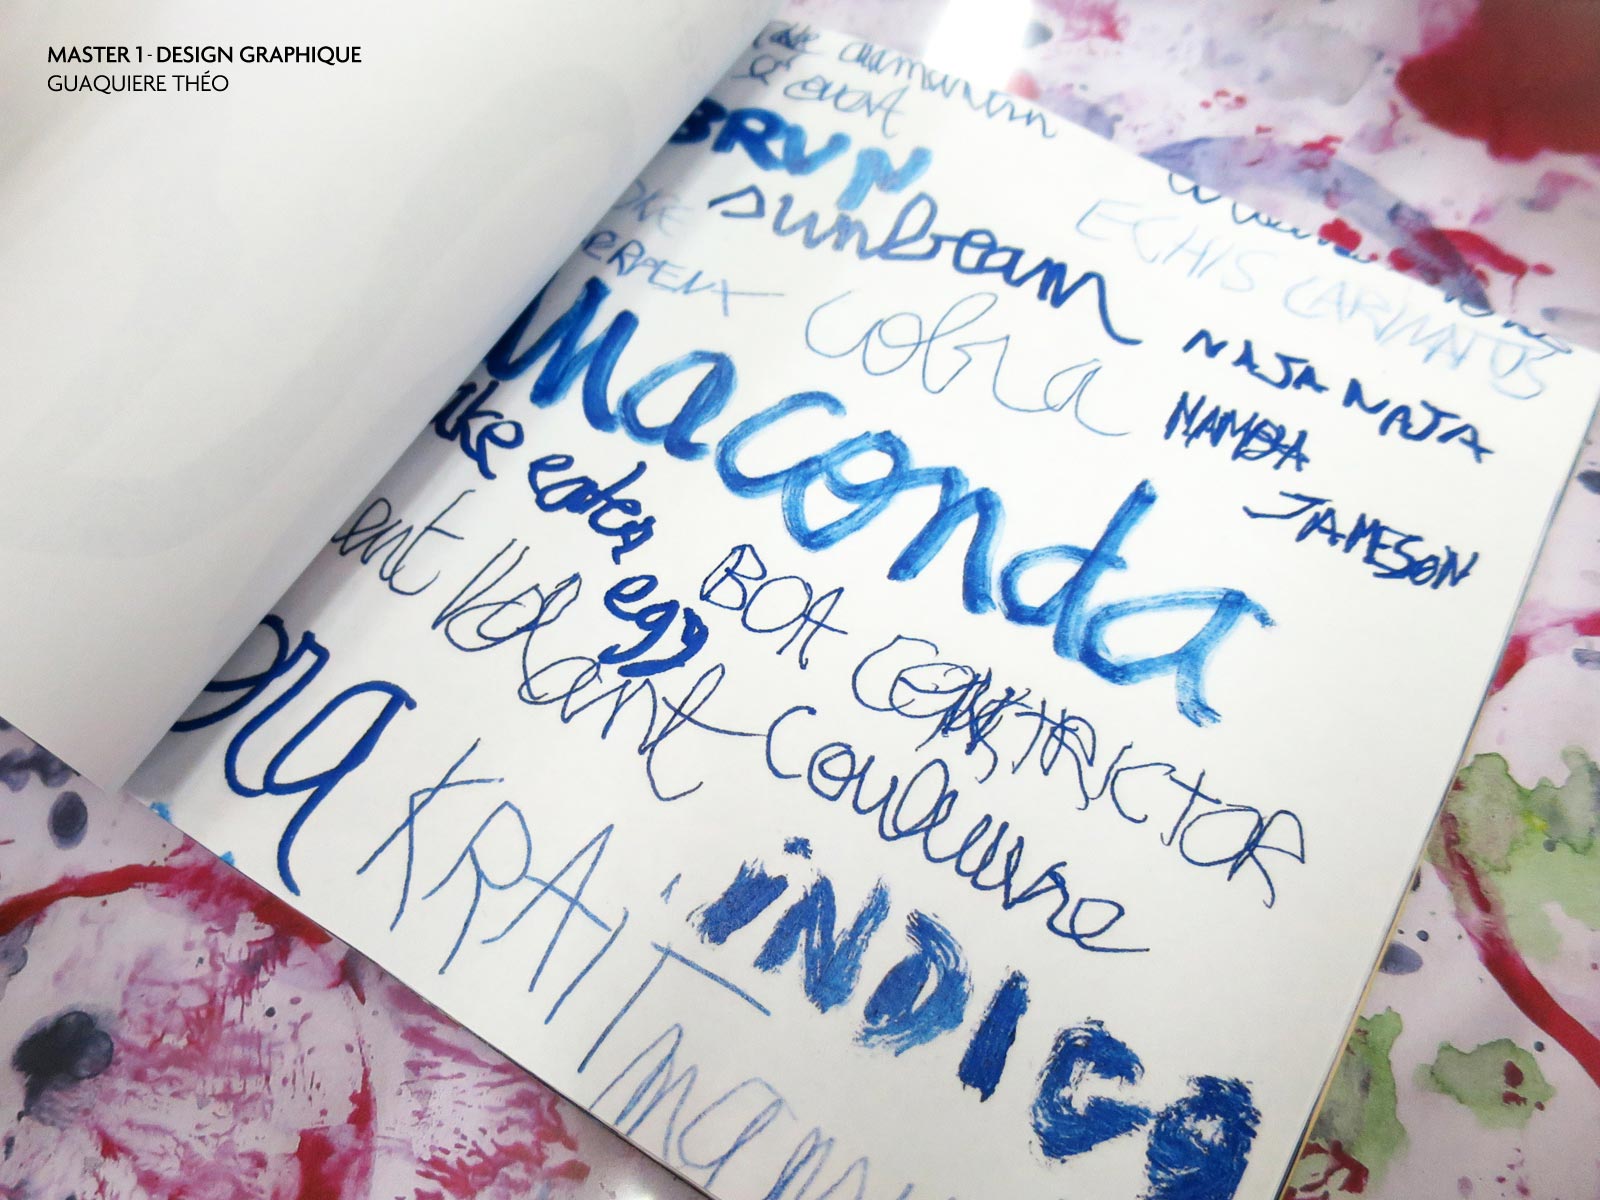 MASTER 1 - DESIGN GRAPHIQUE
GUAQUIERE THÉO
BRUN
sunbeam
ECHIS CARINATUS
cobra
NAJA NAJA
MAMBA
JAMESON
anaconda
eater egg
BOA CONSTRICTOR
volant
couleuvre
KRAiT
iNDIGO